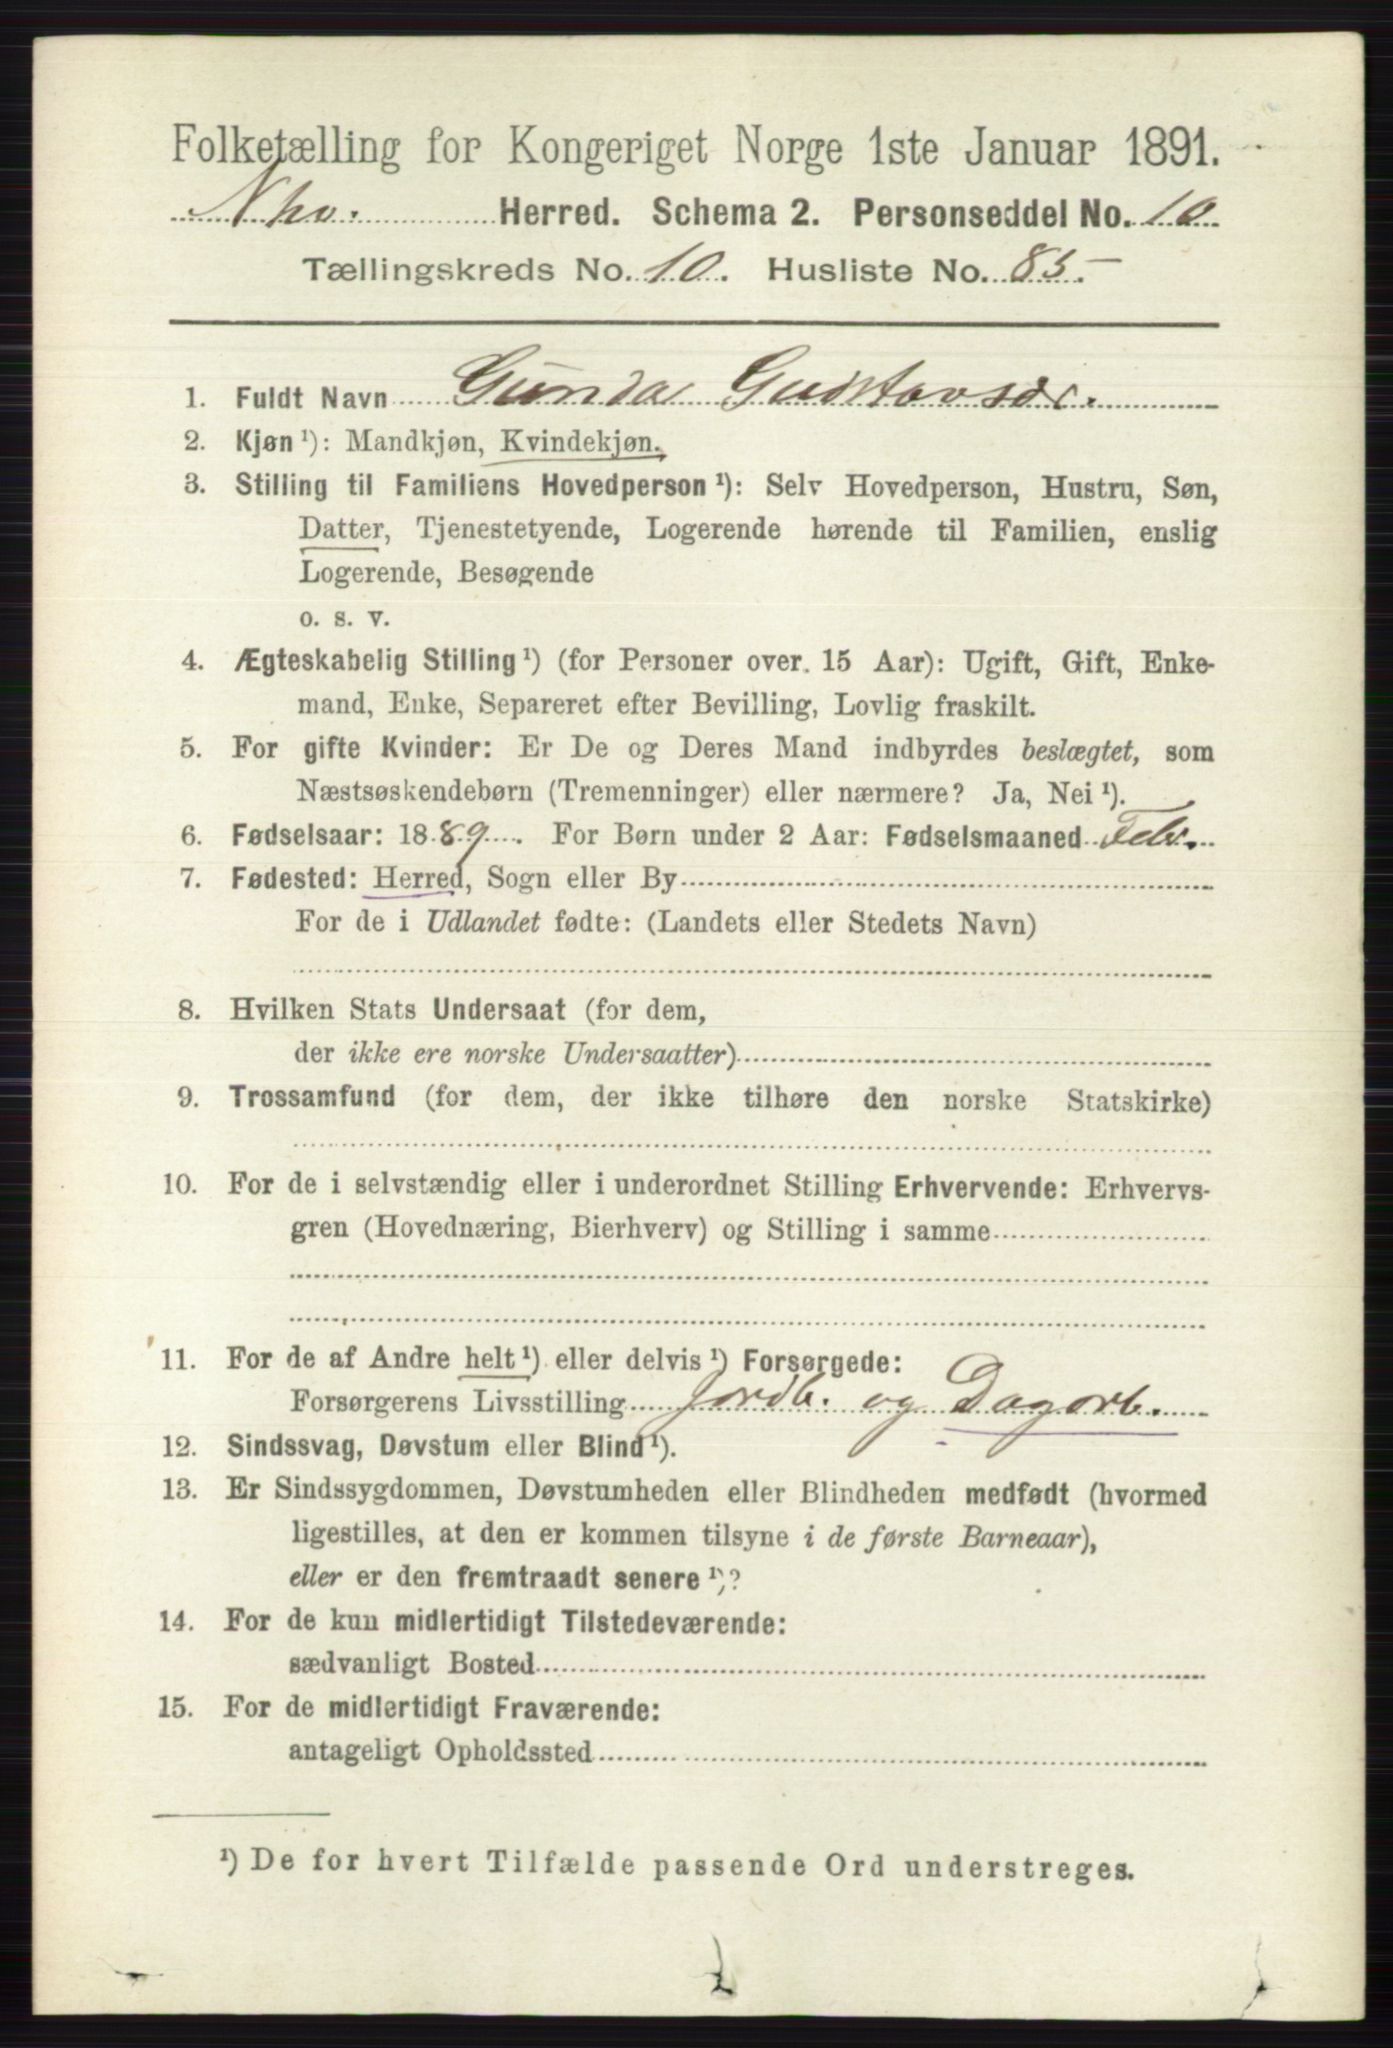 Folketælling for Kongeriget Norge 1ste Januar 1891.
Nho. Herred. Schema 2. Personseddel No. 10
Tællingskreds No. 10. Husliste No. 85.
1. Fuldt Navn Gunda Gustavsdr.
2. Kjøn ¹): Mandkjøn, Kvindekjøn.
3. Stilling til Familiens Hovedperson ¹): Selv Hovedperson, Hustru, Søn,
Datter, Tjenestetyende, Logerende hørende til Familien, enslig
Logerende, Besøgende
o. s. v.
4. Ægteskabelig Stilling ¹) (for Personer over 15 Aar): Ugift, Gift, Enke-
mand, Enke, Separeret efter Bevilling, Lovlig fraskilt.
5. For gifte Kvinder: Er De og Deres Mand indbyrdes beslægtet, som
Næstsøskendebørn (Tremenninger) eller nærmere? Ja, Nei ¹).
6. Fødselsaar: 1889. For Børn under 2 Aar: Fødselsmaaned Febr.
7. Fødested: Herred, Sogn eller By
For de i Udlandet fødte: (Landets eller Stedets Navn)
8. Hvilken Stats Undersaat (for dem,
der ikke ere norske Undersaatter)
9. Trossamfund (for dem, der ikke tilhøre den norske Statskirke)
10. For de i selvstændig eller i underordnet Stilling Erhvervende: Erhvervs-
gren (Hovednæring, Bierhverv) og Stilling i samme
11. For de af Andre helt ¹) eller delvis ¹) Forsørgede:
Forsørgerens Livsstilling Jordb. og Dagarb.
12. Sindssvag, Døvstum eller Blind ¹).
13. Er Sindssygdommen, Døvstumheden eller Blindheden medfødt (hvormed
ligestilles, at den er kommen tilsyne i de første Barneaar),
eller er den fremtraadt senere ¹)?
14. For de kun midlertidigt Tilstedeværende:
sædvanligt Bosted
15. For de midlertidigt Fraværende:
antageligt Opholdssted
¹) De for hvert Tilfælde passende Ord understreges.